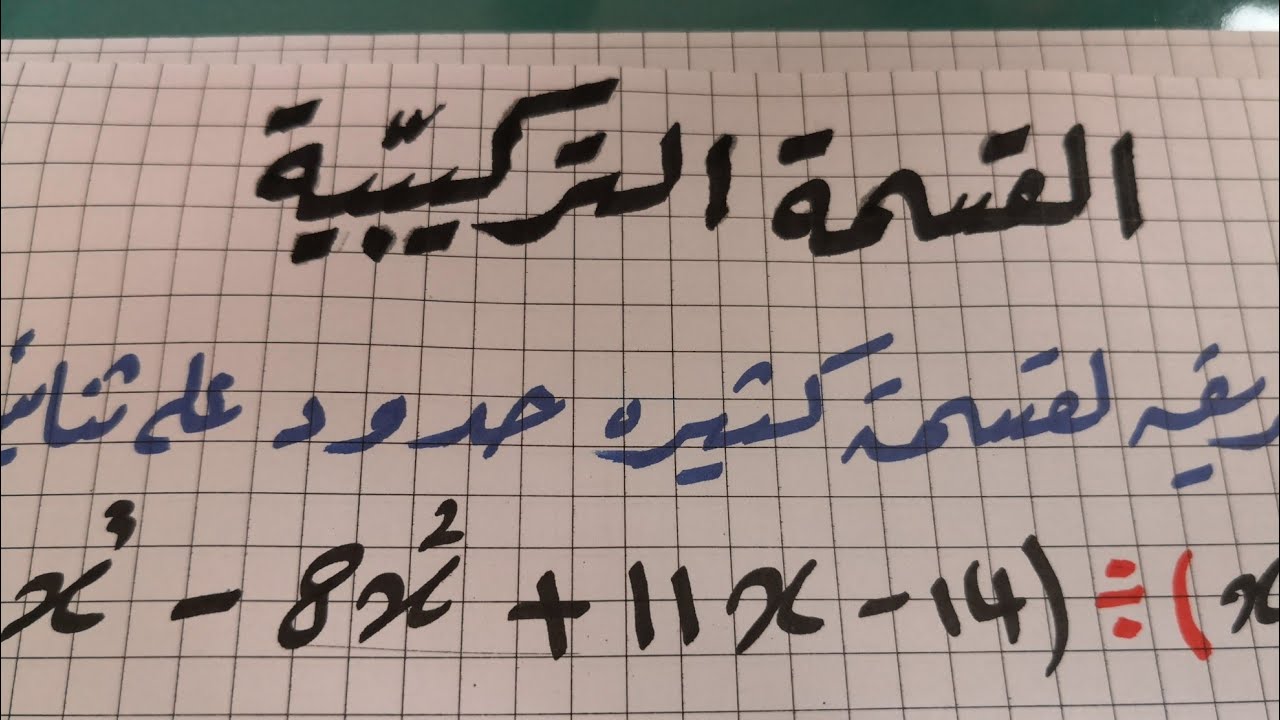 القسمة التركيبية
لقسمة كثيره حدود على
x³ - 8x² + 11x - 14) ÷ (x